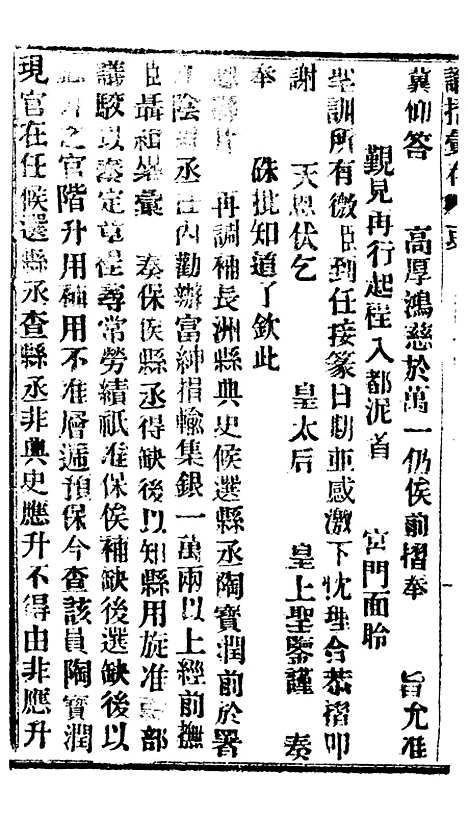 諭摺彙存
冀仰答 高厚鴻慈於萬一仍俟前摺奉 旨允准
覲見再行起程入都泥首 宮門面聆
聖訓所有微臣到任接篆日期並感激下忱理合恭摺叩
謝 天恩伏乞 皇太后 皇上聖鑒謹 奏
奉 硃批知道了欽此
再調補長洲縣典史候選縣丞陶寶潤前於署
陰 丞任內勸辦富紳捐輸集銀一萬兩以上經前撫
臣聶緝槼彙 奏保俟縣丞得缺後以知縣用旋准 部
議駁以奏定章程尋常勞績祇准保俟補缺後選缺後以
之官階升用補用不准層遞預保今查該員陶寶潤
現官在任候選縣丞查縣丞非典史應升不得由非應升